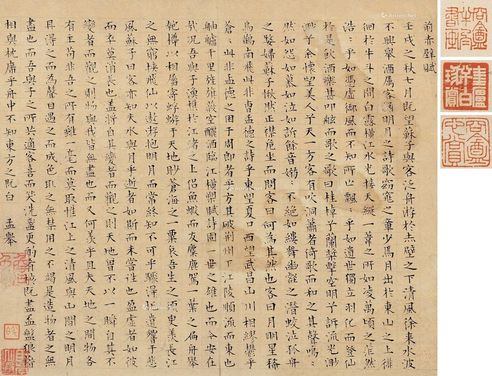 前赤壁賦
壬戌之秋七月既望蘇子與客泛舟游於赤壁之下清風徐來水波
不興舉酒屬客誦明月之詩歌窈窕之章少焉月出於東山之上徘
徊於斗牛之間白露橫江水光接天縱一葦之所如凌萬頃之茫然
浩〻乎如馮虛御風而不知所止飄〻乎如遺世獨立羽化而登仙
於是飲酒樂甚扣舷而歌之歌曰桂棹兮蘭槳擊空明兮泝流光渺
渺兮余懷望美人兮天一方客有吹洞簫者倚歌而和之其聲嗚〻
然如怨如慕如泣如訴餘音嫋〻不絕如縷舞幽壑之潛蛟泣孤舟
之嫠婦蘇子愀然正襟危坐而問客曰何為其然也客曰月明星稀
烏鵲南飛此非曹孟德之詩乎東望夏口西望武昌山川相繆鬱乎
蒼〻此非孟德之困於周郎者乎方其破荊州下江陵順流而東也
舳艫千里旌旗蔽空釃酒臨江橫槊賦詩固一世之雄也而今安在
哉況吾與子漁樵於江渚之上侶魚蝦而友麋鹿駕一葉之扁舟舉
匏樽以相屬寄蜉蝣于天地眇滄海之一粟哀吾生之須臾羨長江
之無窮挾飛仙以遨游抱明月而長終知不可乎驟得托遺響于悲
風蘇子曰客亦知夫水與月乎逝者如斯而未嘗往也盈虛者如彼
而卒莫消長也蓋將自其變者而觀之則天地曾不以一瞬自其不
變者而觀之則物與我皆無盡也而又何羨乎且夫天地之間物各
有主苟非吾之所有雖一毫而莫取惟江上之清風與山間之明月
耳得之而為聲目遇之而成色取之無禁用之不竭是造物者之無
盡藏也而吾與子之所共適客喜而笑洗盞更酌肴核既盡盃盤狼藉
相與枕藉乎舟中不知東方之既白 孟舉